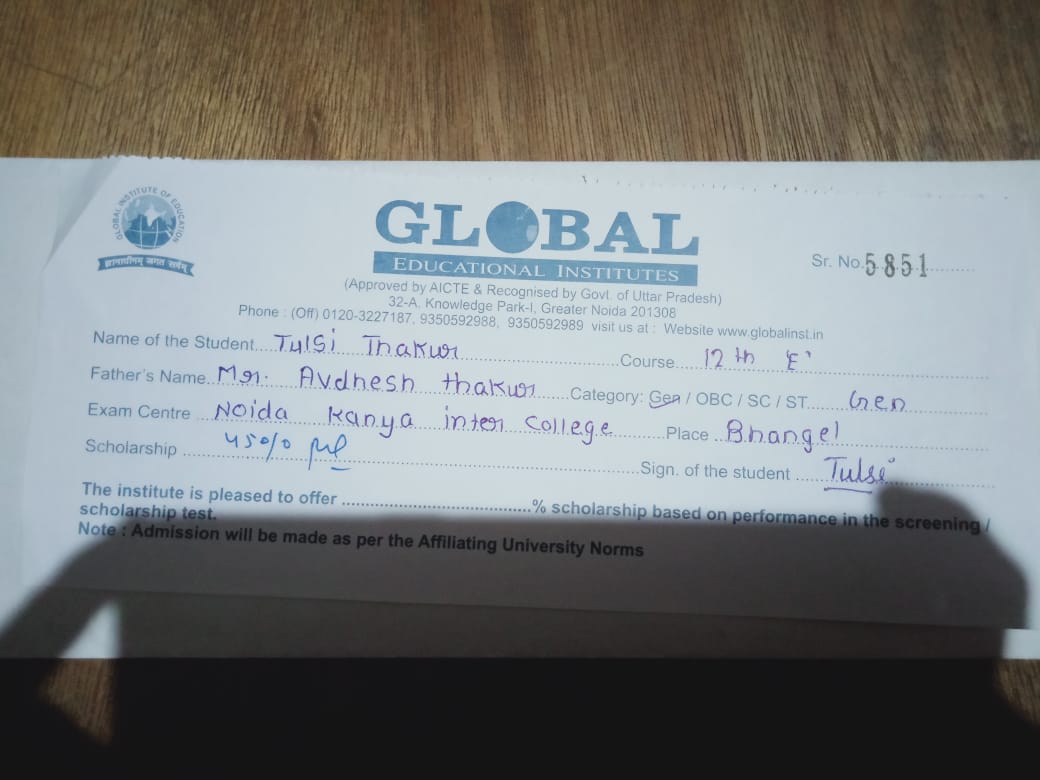 GLOBAL INSTITUTE OF EDUCATION
ज्ञानाधीनम् जगत सर्वम्
GLOBAL
EDUCATIONAL INSTITUTES
Sr. No. 5851
(Approved by AICTE & Recognised by Govt. of Uttar Pradesh)
32-A. Knowledge Park-I, Greater Noida 201308
Phone : (Off) 0120-3227187, 9350592988, 9350592989 visit us at : Website www.globalinst.in
Name of the Student Tulsi Thakur Course 12th 'E'
Father's Name Mr. Avdhesh thakur Category: Gen / OBC / SC / ST Gen
Exam Centre Noida Kanya inter College Place Bhangel
Scholarship 45% Sign. of the student Tulsi
The institute is pleased to offer ....................................% scholarship based on performance in the screening /
scholarship test.
Note : Admission will be made as per the Affiliating University Norms